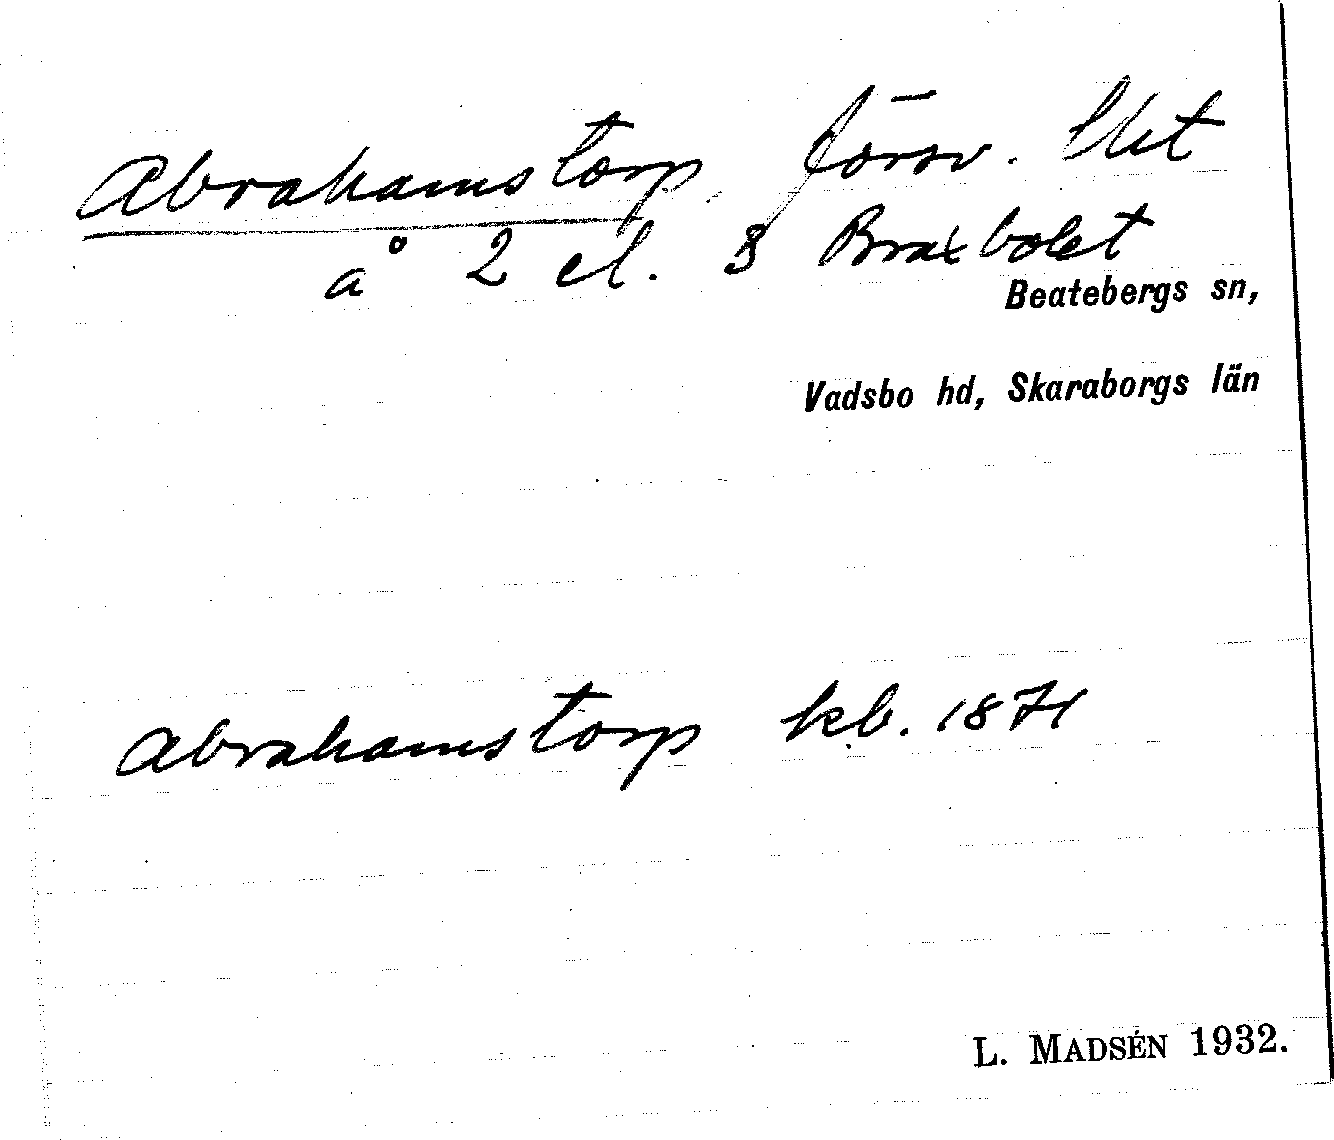 Abrahamstorp, försv. lht
å 2 el. 3 Braxbolet
Beatebergs sn,
Vadsbo hd, Skaraborgs län
Abrahamstorp kb. 1871
L. MADSÉN 1932.